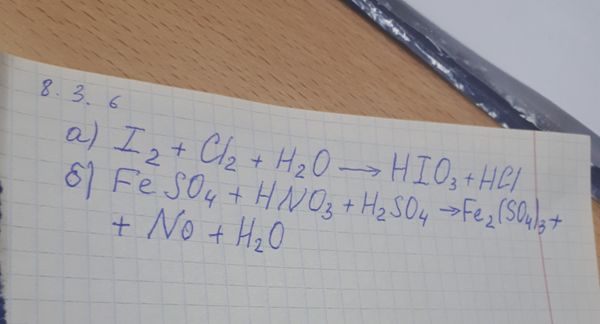 8. 3. 6
а) I₂ + Cl₂ + H₂O → HIO₃ + HCl
б) FeSO₄ + HNO₃ + H₂SO₄ → Fe₂(SO₄)₃ +
+ No + H₂O